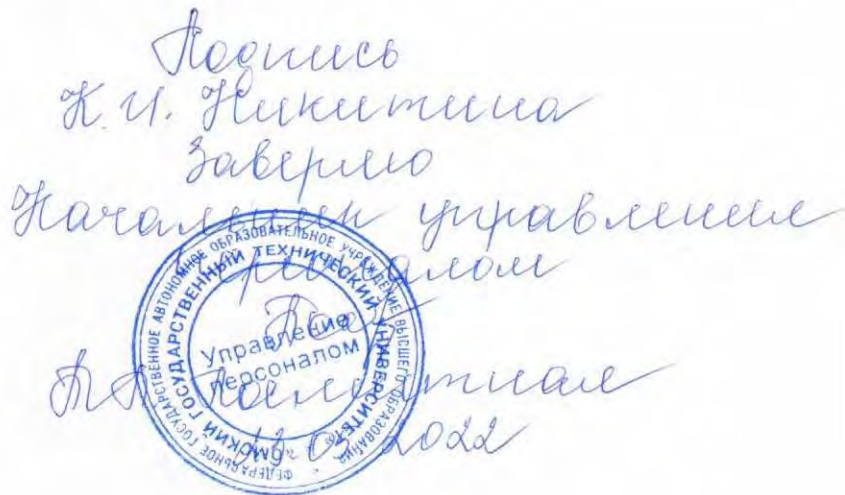 Подпись
К.И. Никитина
Заверяю
Начальник управления
персоналом
ФЕДЕРАЛЬНОЕ ГОСУДАРСТВЕННОЕ АВТОНОМНОЕ ОБРАЗОВАТЕЛЬНОЕ УЧРЕЖДЕНИЕ ВЫСШЕГО ОБРАЗОВАНИЯ
ОМСКИЙ ГОСУДАРСТВЕННЫЙ ТЕХНИЧЕСКИЙ УНИВЕРСИТЕТ
Управление
персоналом
03 2022